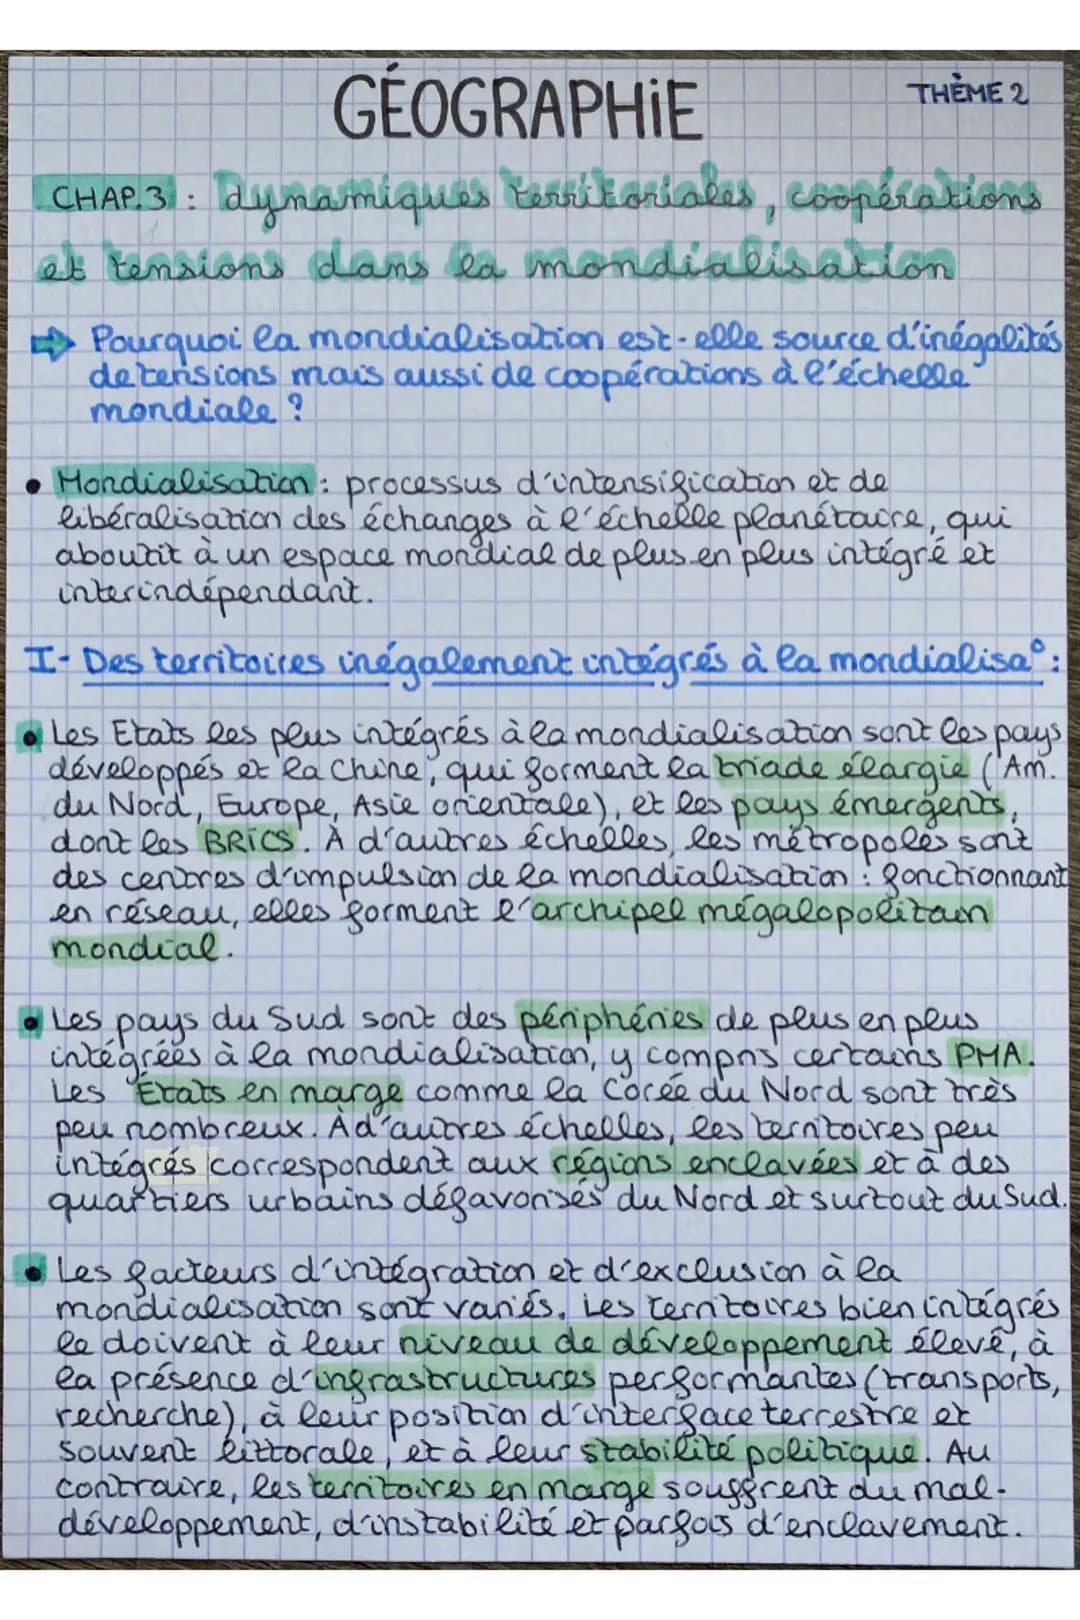 GÉOGRAPHiE
THÈME 2
CHAP.3 : dynamiques territoriales, coopérations
et tensions dans la mondialisation
➡ Pourquoi la mondialisation est-elle source d'inégalités
de tensions mais aussi de coopérations à l'échelle
mondiale ?
• Mondialisation : processus d'intensification et de
libéralisation des échanges à l'échelle planétaire, qui
aboutit à un espace mondial de plus en plus intégré et
interindépendant.
I- Des territoires inégalement intégrés à la mondialisa° :
• Les Etats les plus intégrés à la mondialisation sont les pays
développés et la Chine, qui forment la triade élargie (Am.
du Nord, Europe, Asie orientale), et les pays émergents,
dont les BRICS. À d'autres échelles, les métropoles sont
des centres d'impulsion de la mondialisation : fonctionnant
en réseau, elles forment l'archipel mégalopolitain
mondial.
• Les pays du Sud sont des périphéries de plus en plus
intégrées à la mondialisation, y compris certains PMA.
Les États en marge comme la Corée du Nord sont très
peu nombreux. À d'autres échelles, les territoires peu
intégrés correspondent aux régions enclavées et à des
quartiers urbains défavorisés du Nord et surtout du Sud.
• Les facteurs d'intégration et d'exclusion à la
mondialisation sont variés. Les territoires bien intégrés
le doivent à leur niveau de développement élevé, à
la présence d'infrastructures performantes (transports,
recherche), à leur position d'interface terrestre et
souvent littorale, et à leur stabilité politique. Au
contraire, les territoires en marge souffrent du mal-
développement, d'instabilité et parfois d'enclavement.